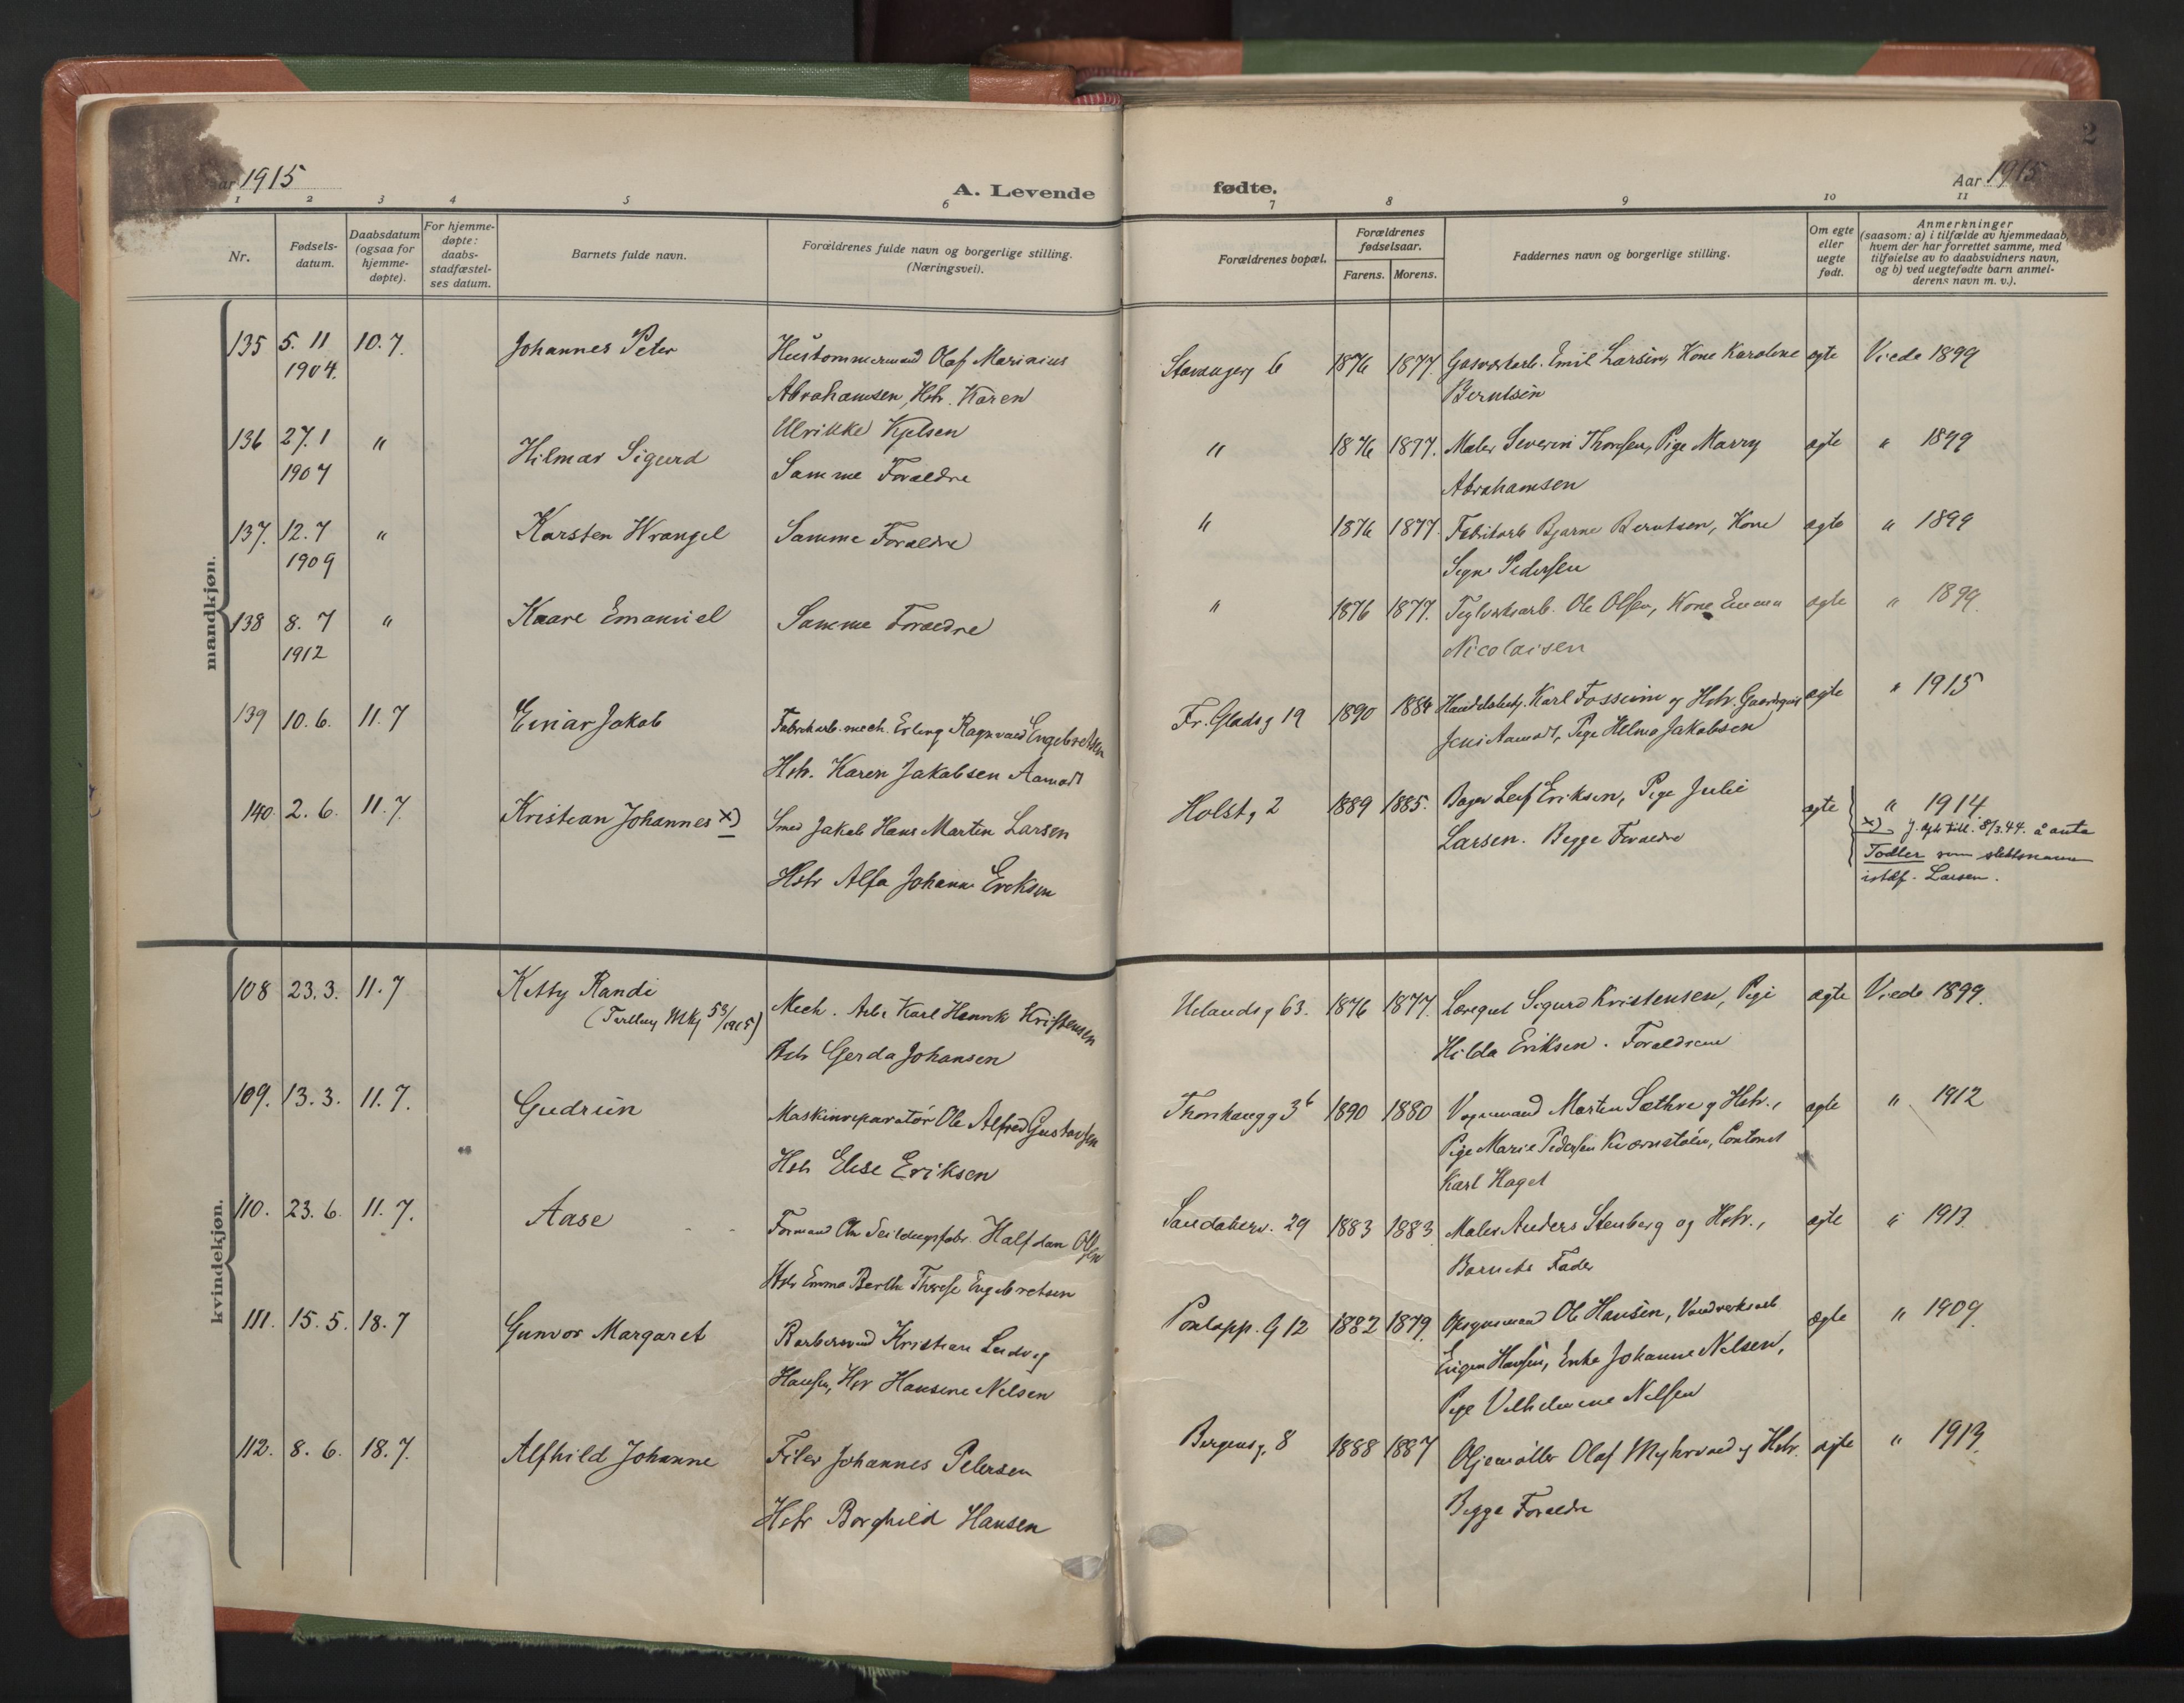 Aar 1915
A. Levende
1 2 3 4 5 6
Nr.
Fødsels-
datum.
Daabsdatum
(ogsaa for
hjemme-
døpte).
For hjemme-
døpte:
daabs-
stadfæstel-
ses datum.
Barnets fulde navn.
Forældrenes fulde navn og borgerlige stilling.
(Næringsvei).
mandkjøn.
135 5. 11 10. 7. Johannes Peter
1904.
Olaf Marinius
Abrahamsen, Hstr. Karen
Ulrikke Kjelsen
136 27. 1 " Hilmar Sigurd
1907 Samme Forældre
137. 12. 7 " Karsten Wrangel Samme Forældre
1909
138 8. 7 " Kaare Emanuel Samme Forældre
1912
139 10. 6. 11. 7 Einar Jakob
Fabrikarb. mech. Erling Ragnvald Engebretsen
Hstr. Karen Jakobsen Aamodt
140. 2. 6. 11. 7. Kristian Johannes x)
Smed Jakob Hans Martin Larsen
Hstr Alfa Johanne Eriksen
kvindekjøn.
108 23. 3. 11. 7 Ketty Randi
Mech. Arb. Karl Henrik Kristensen
Hstr Gerda Johansen
109. 13. 3. 11. 7. Gudrun
Maskinreparatør Ole Alfred Gustavsen
Hstr Elise Eriksen
110. 23. 6. 11. 7. Aase
Formand Chr Seildugsfabr. Halfdan Olsen
Hstr Emma Berthe Therese Engebretsen
111. 15. 5. 18. 7 Gunvor Margaret
Barbersvend Kristian Ludvig
Hansen, Hstr Hansine Nilsen
112. 8. 6. 18. 7. Alfhild Johanne
Filer Johannes Petersen
Hstr Borghild Hansen
2
fødte.
Aar 1915
7 8 9 10 11
Forældrenes bopæl.
Forældrenes
fødselsaar.
Farens. Morens.
Faddernes navn og borgerlige stilling.
Om egte
eller
uegte
født.
Anmerkninger
(saasom: a) i tilfælde av hjemmedaab,
hvem der har forrettet samme, med
tilføielse av to daabsvidners navn,
og b) ved uegtefødte barn anmel-
derens navn m. v.).
Stavangerg 6 1876 1877. Gasverksarb. Emil Larsen, Kone Karoline egte Viede 1899
Berntsen
" 1876 1877. Maler Severin Thoresen, Pige Marry egte " 1899
Abrahamsen
" 1876 1877 Fabrikarb Bjarne Berntsen, Kone egte " 1899
Signe Pedersen
" 1876 1877. Teglverksarb. Ole Olsen, Kone Emma egte " 1899.
Nicolaisen
Fr. Gladsg 19 1890 1884 Karl Fossum og Hstr. egte " 1915
Jens Aamodt, Pige Helma Jakobsen
Holstg 2 1889 1885. Bager Leif Eriksen, Pige Julie egte " 1914.
Larsen. Begge Forældre
x) J. dept till. 8/3.44. å anta
Todler som slektsnavn
istdf. Larsen.
Uelandsg 63. 1876 1877. Sigurd Kristensen, Pige egte Viede 1899.
Hilda Eriksen. Forældrene
Thorshaugg 3b 1890 1880 Vognmand Morten Sæthre og Hstr., egte " 1912
Pige Marie Pedersen Kværnstøen,
Karl Hagel
Sandakerv. 29 1883 1883. Maler Anders Stenberg og Hstr., egte " 1913
Barnets Fader
Pontopp. G 12 1882 1879. Opsynsmand Ole Hansen, egte " 1909
Eugen Hansen, Enke Johanne Nilsen,
Pige Vilhelmine Nilsen
Bergensg. 8 1888 1887 Oljemøller Olaf Myhrvold og Hstr. egte " 1913.
Begge Forældre